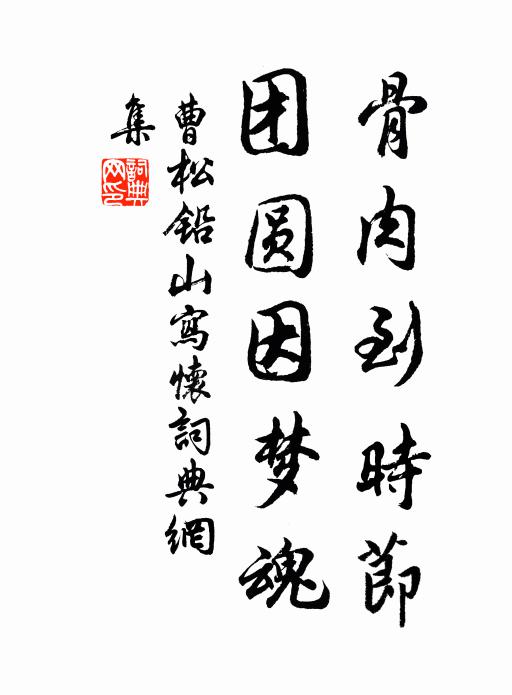 骨肉到時節
团圆因梦魂
曹松铅山寫懷詞典網
集
詞典
网印